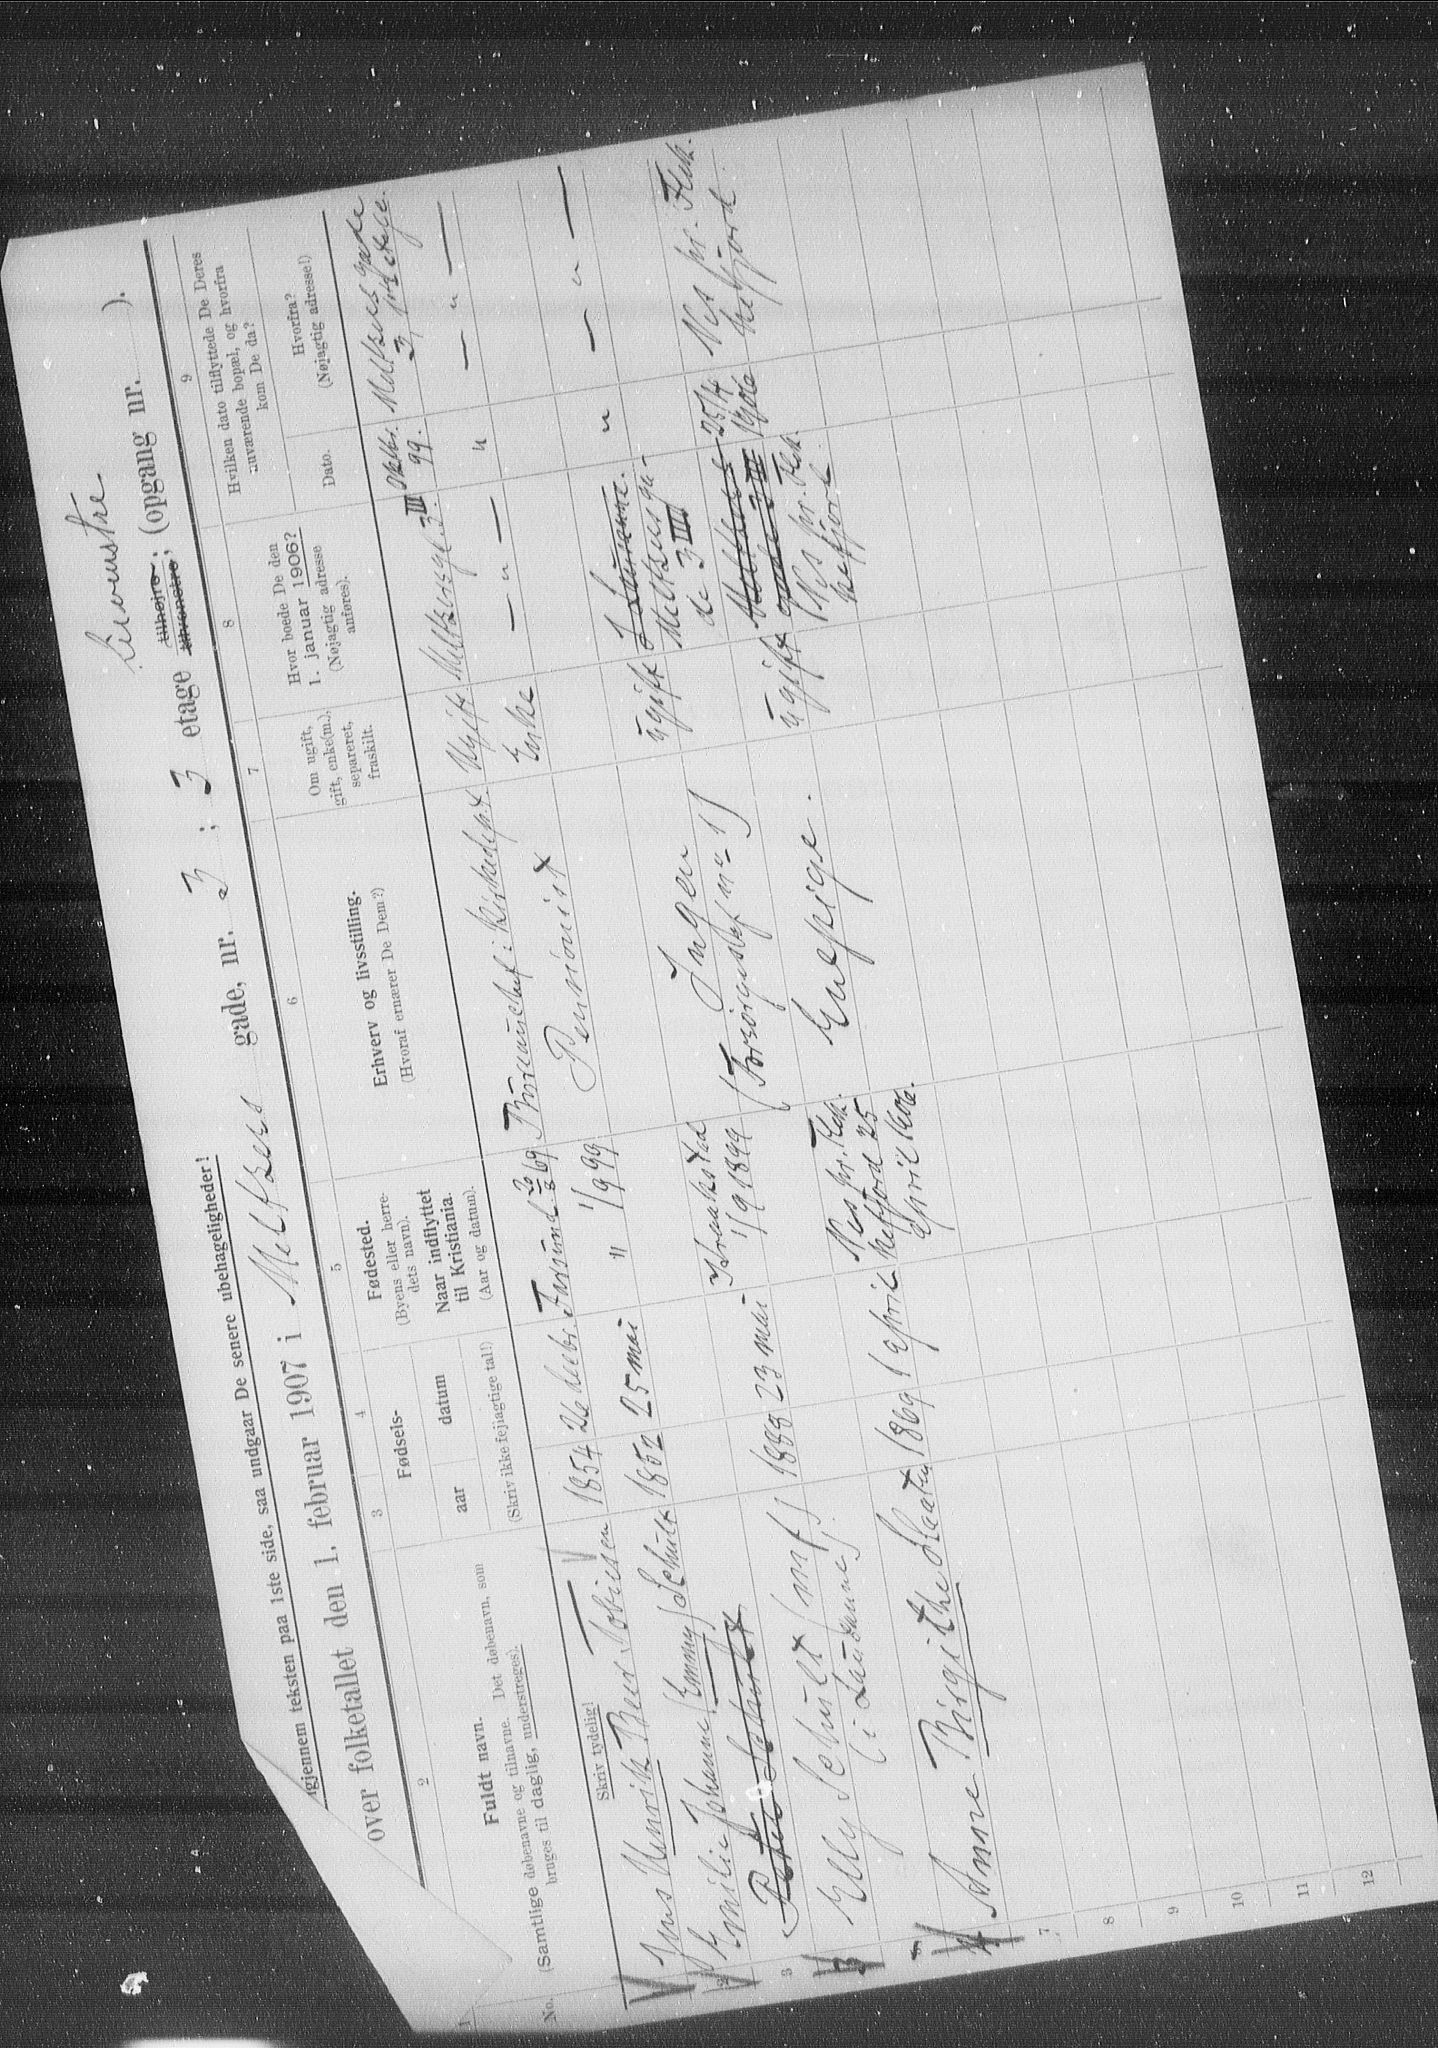 igjennem teksten paa 1ste side, saa undgaar De senere ubehageligheder!
over folketallet den 1. februar 1907 i Meltzers gade, nr. 3 ; 3 etage tilhøjre tilvenstre; (opgang nr. ).
1
2
3
4
5
6
7
8
9
No.
Fuldt navn.
(Samtlige døbenavne og tilnavne. Det døbenavn, som
bruges til daglig, understreges).
Skriv tydelig!
Fødsels-
aar
datum
(Skriv ikke fejlagtige tal!)
Fødested.
(Byens eller herre-
dets navn).
Naar indflyttet
til Kristiania.
(Aar og datum).
Erhverv og livsstilling.
(Hvoraf ernærer De Dem?)
Om ugift,
gift, enke(m.),
separeret,
fraskilt.
Hvor boede De den
1. januar 1906?
(Nøjagtig adresse
anføres).
Hvilken dato tilflyttede De Deres
nuværende bopæl, og hvorfra
kom De da?
Dato.
Hvorfra?
(Nøjagtig adresse!)
Jens Henrik Berd Tobiesen 1854 Farsund Bureauchef i Kirkedept. Ugift Meltzersgt. 3 III Oktbr. 99. Meltzers gade
Emilie Johanne (Emmy) Schult 1852 25 mai " 1/9 99 Pensionist Enke — " — " — " —
Elly Schult (mf) 1888 23 mai 1/9 1899 Ingen ugift Meltzers ga-
(i Lausanne). (Forsørges af no 1) de 3 III
" — " —
Anne Birgithe 1869 1 April Nes pr. Flek-
kefjord 25
April 1906. Enepige. ugift Nes pr. Flek-
kefjord 25/4 1906 Nes pr. Flek-
kefjord.
2
3
7
8
9
10
11
12